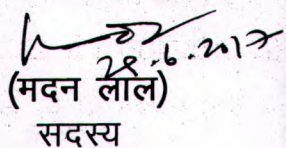 28.6.2017
(मदन लाल)
सदस्य